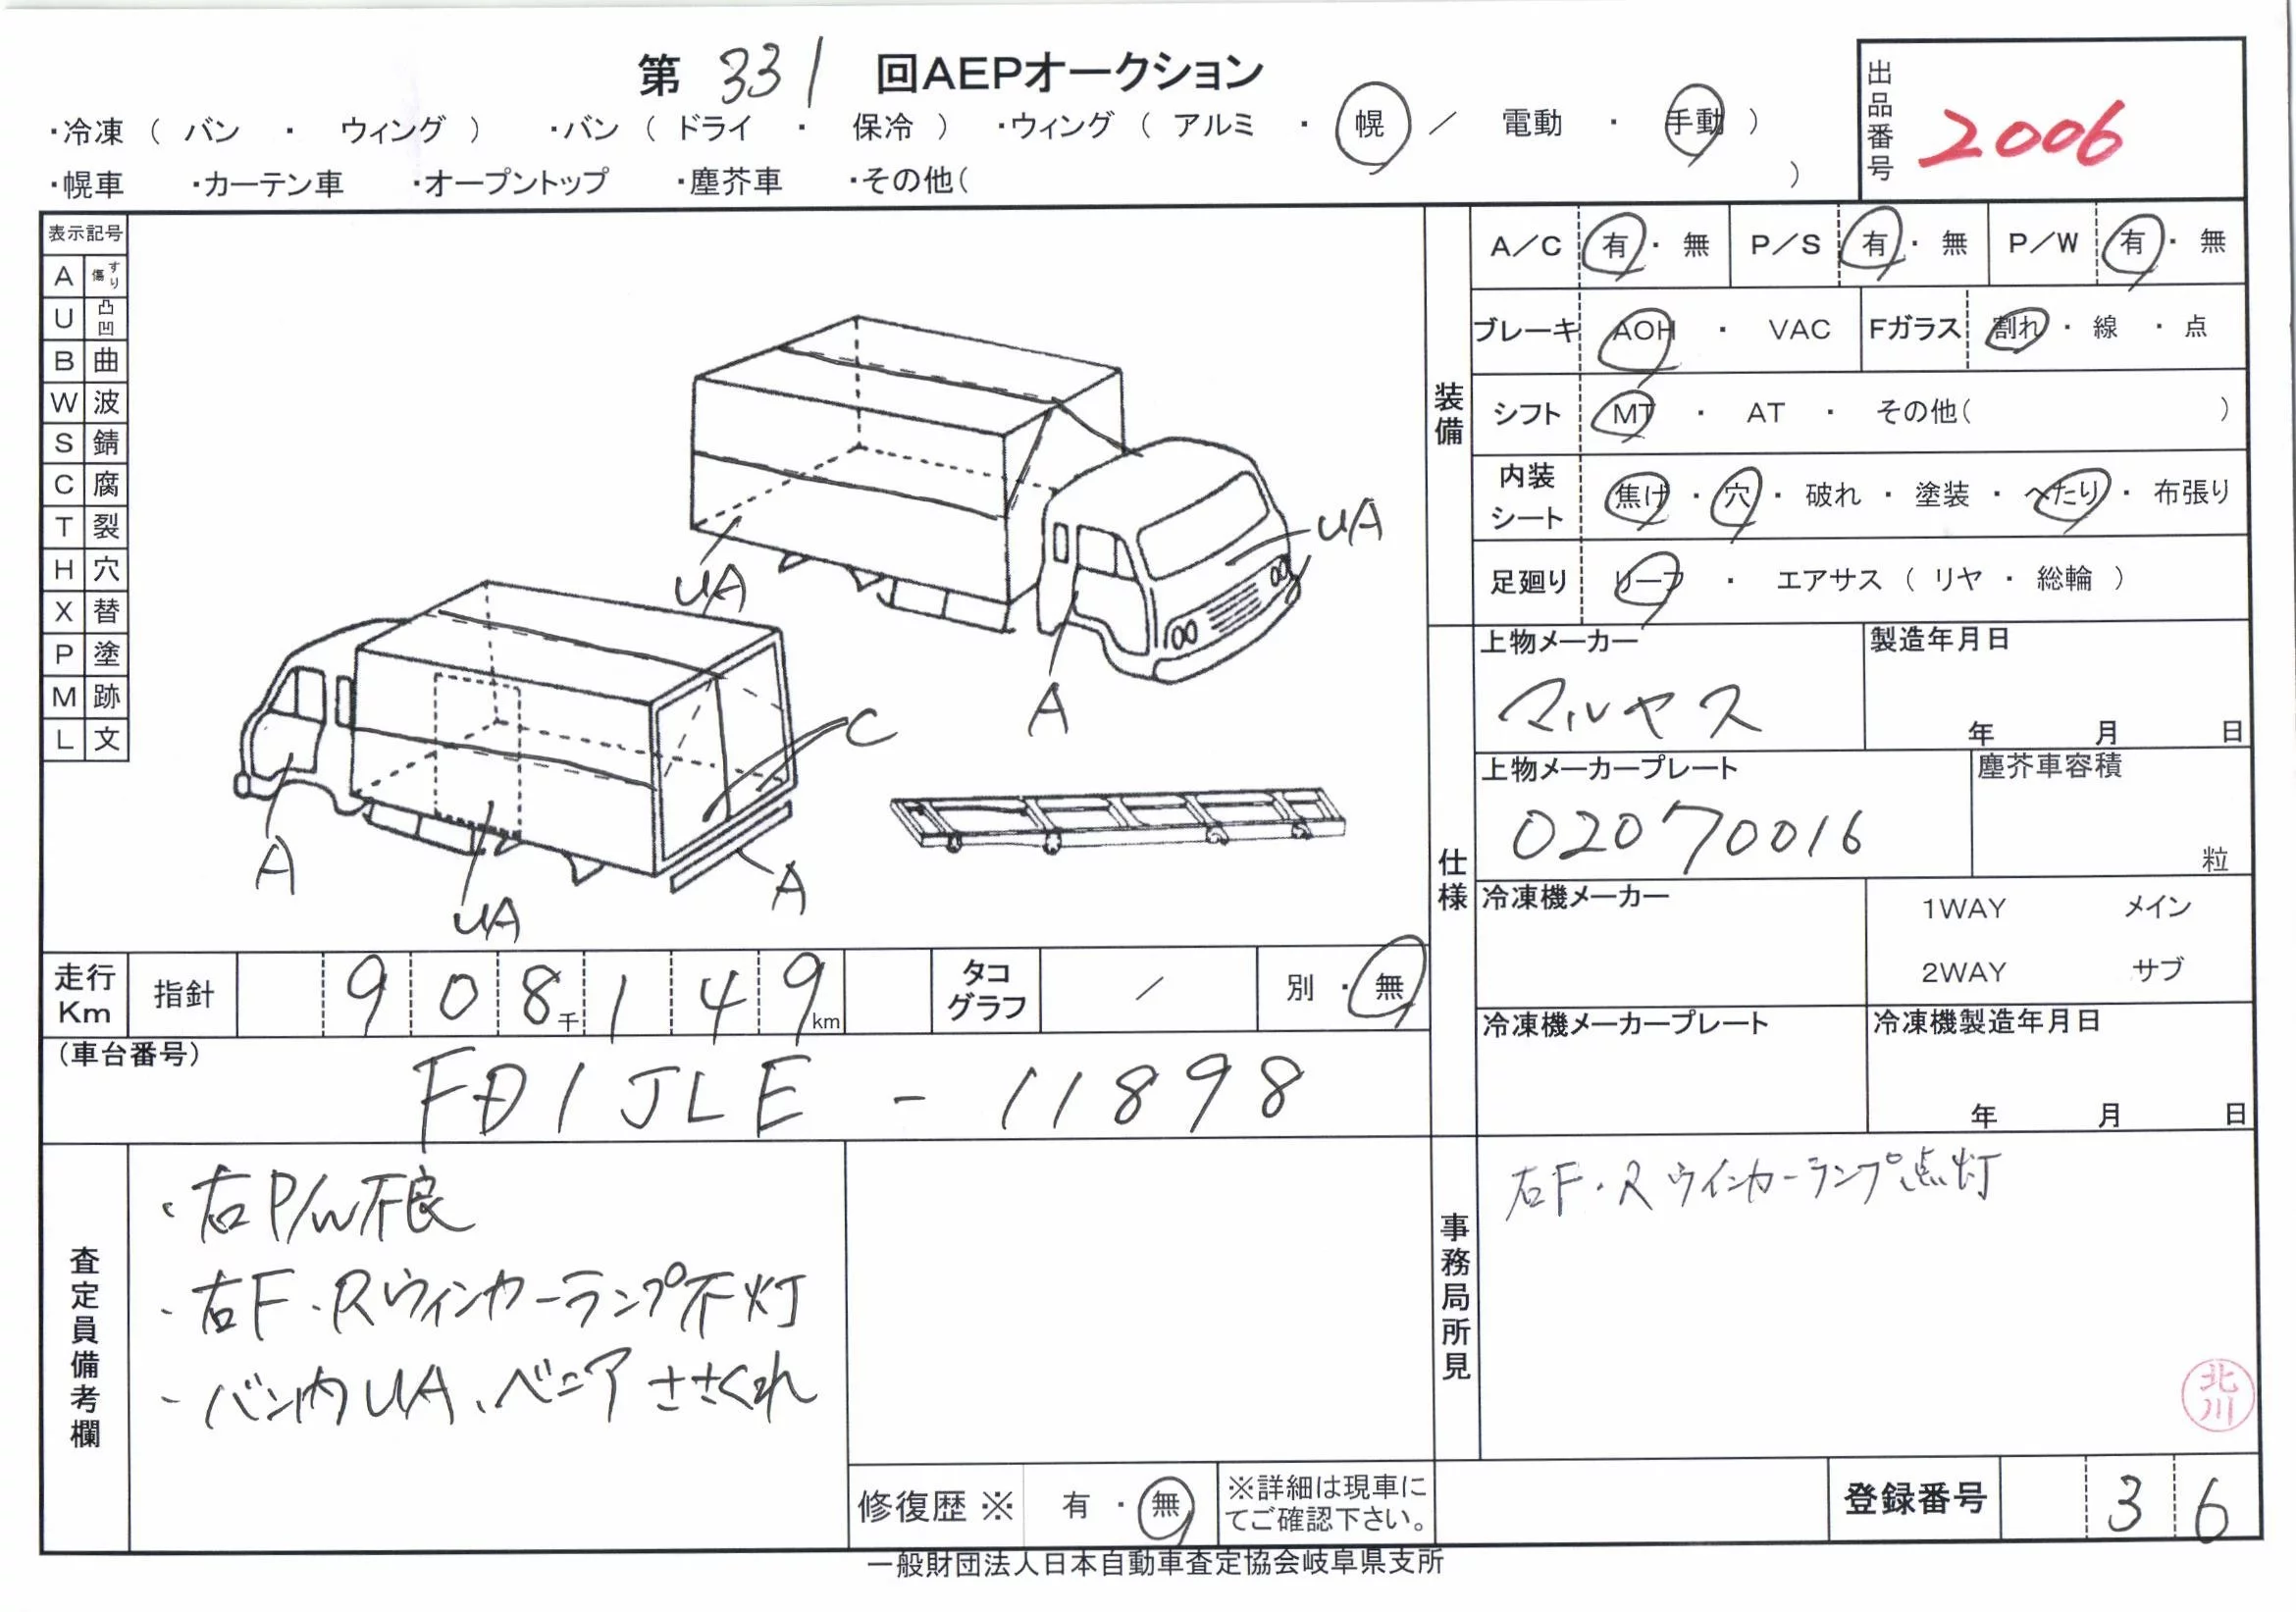 第 331 回AEPオークション
・冷凍 ( バン ・ ウィング ) ・バン ( ドライ ・ 保冷 ) ・ウィング ( アルミ ・ 幌 / 電動 ・ 手動 )
・幌車 ・カーテン車 ・オープントップ ・塵芥車 ・その他( )
出品番号 2006
表示記号
A すり傷
U 凸凹
B 曲
W 波
S 錆
C 腐
T 裂
H 穴
X 替
P 塗
M 跡
L 文
UA
UA
A
C
A
UA
A
装備
A/C 有・無 P/S 有・無 P/W 有・無
ブレーキ AOH ・ VAC Fガラス 割れ ・ 線 ・ 点
シフト MT ・ AT ・ その他( )
内装シート 焦げ ・ 穴 ・ 破れ ・ 塗装 ・ へたり ・ 布張り
足廻り リーフ ・ エアサス ( リヤ ・ 総輪 )
仕様
上物メーカー 製造年月日
マルヤス 年 月 日
上物メーカープレート 塵芥車容積
02070016 粒
冷凍機メーカー 1WAY メイン
2WAY サブ
冷凍機メーカープレート 冷凍機製造年月日
年 月 日
走行Km 指針 908千149km タコグラフ / 別・無
(車台番号)
FD1JLE - 11898
査定員備考欄
・右P/W不良
・右F・Rウィンカーランプ不灯
・バン内UA、ベニアささくれ
修復歴※ 有・無 ※詳細は現車にてご確認下さい。
事務局所見
右F・Rウインカーランプ点灯
北川
登録番号 36
一般財団法人日本自動車査定協会岐阜県支所